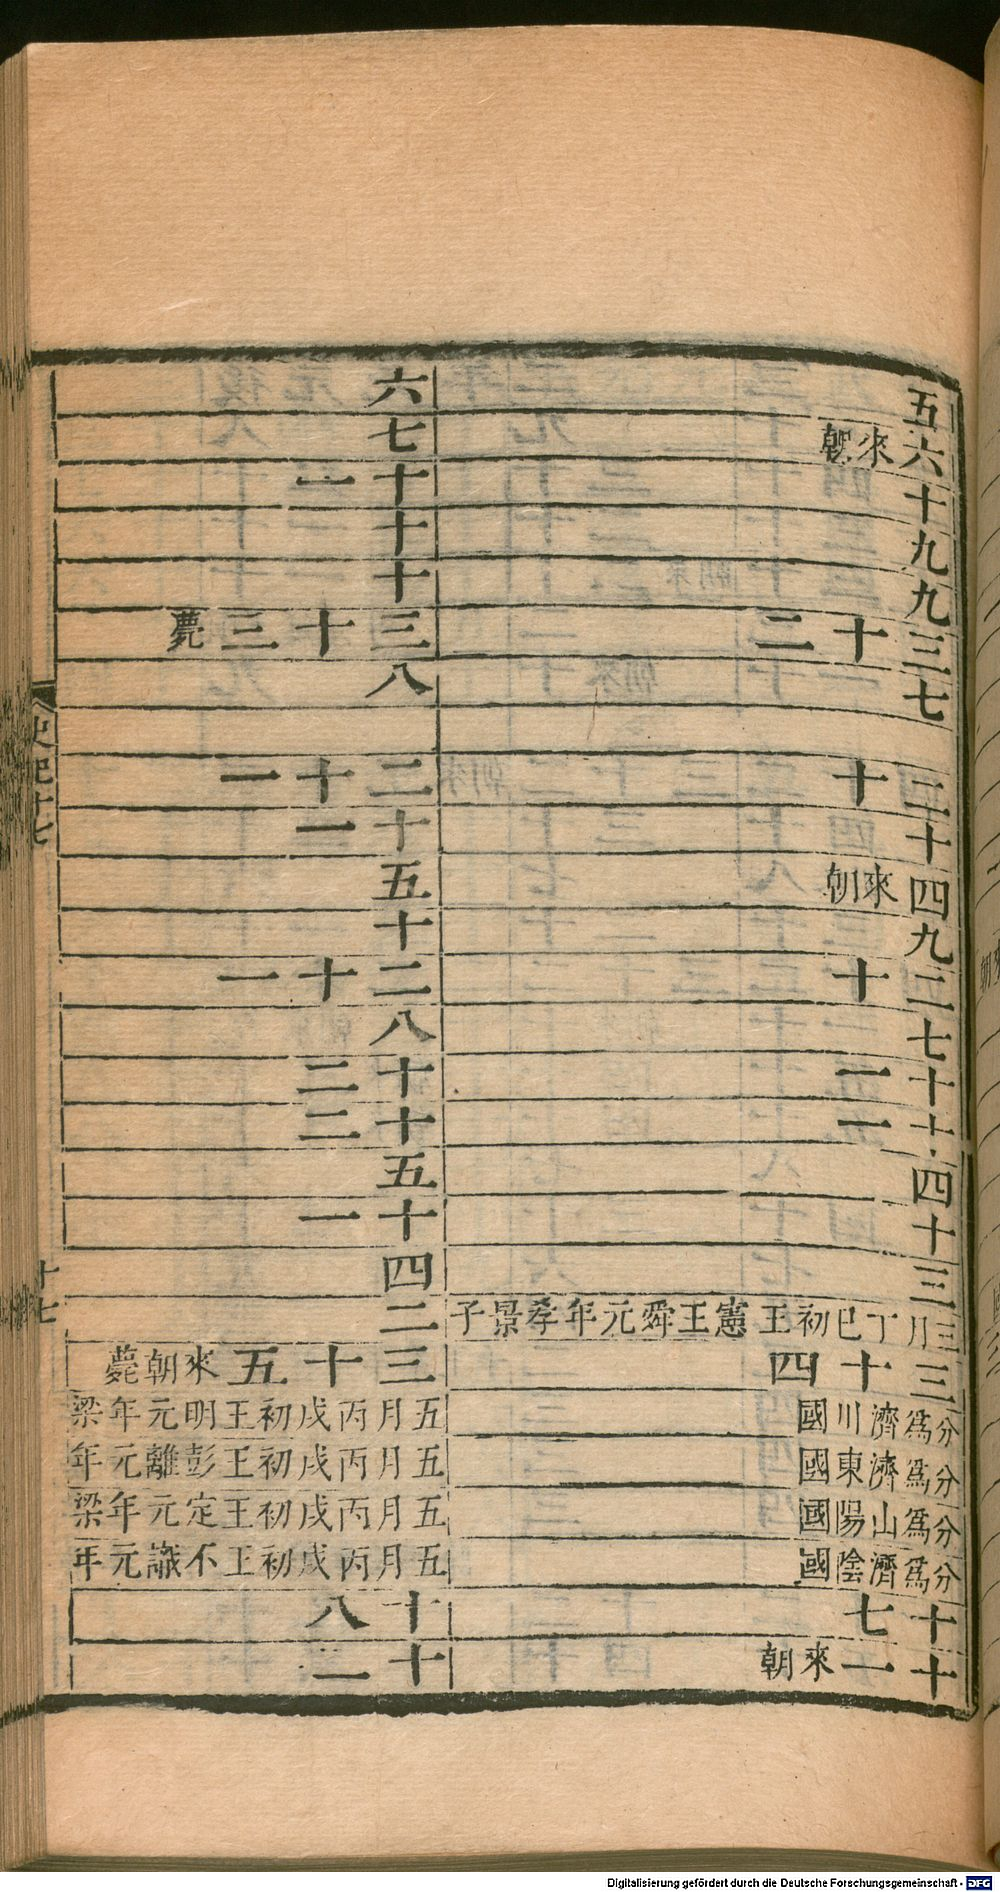 五
六來朝
十
九
九
三十二
七
二十
十
四來朝
九
二十
七
十一
十一
四
十
三
三月丁巳初王憲王舜元年孝景子
三十四
分爲濟川國
分爲濟東國
分爲山陽國
分爲濟陰國
十七
十一來朝
六
七
十一
十
十
三十三薨
八
二十一
十一
五
十
二十一
八
十二
十二
五
十一
四
二
三十五來朝薨
五月丙戌初王明元年梁
五月丙戌初王彭離元年
五月丙戌初王定元年梁
五月丙戌初王不識元年
十八
十二
史記十七
十七
Digitalisierung gefördert durch die Deutsche Forschungsgemeinschaft - DFG